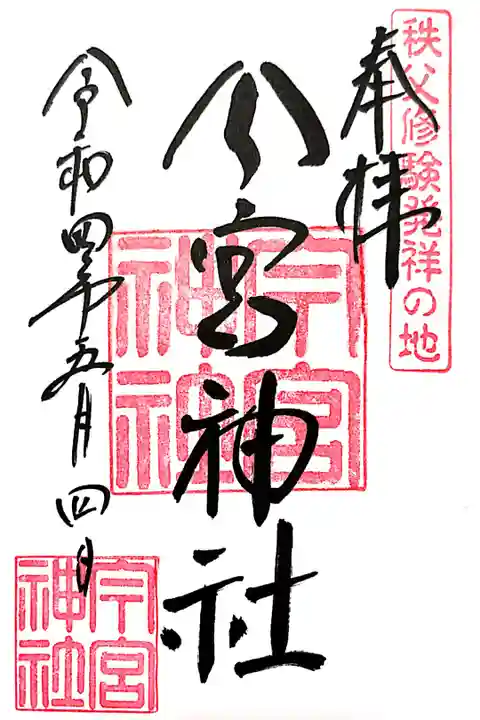 秩父修験発祥の地
奉拝
今宮神社
今宮
神社
令和四年五月四日
今宮
神社